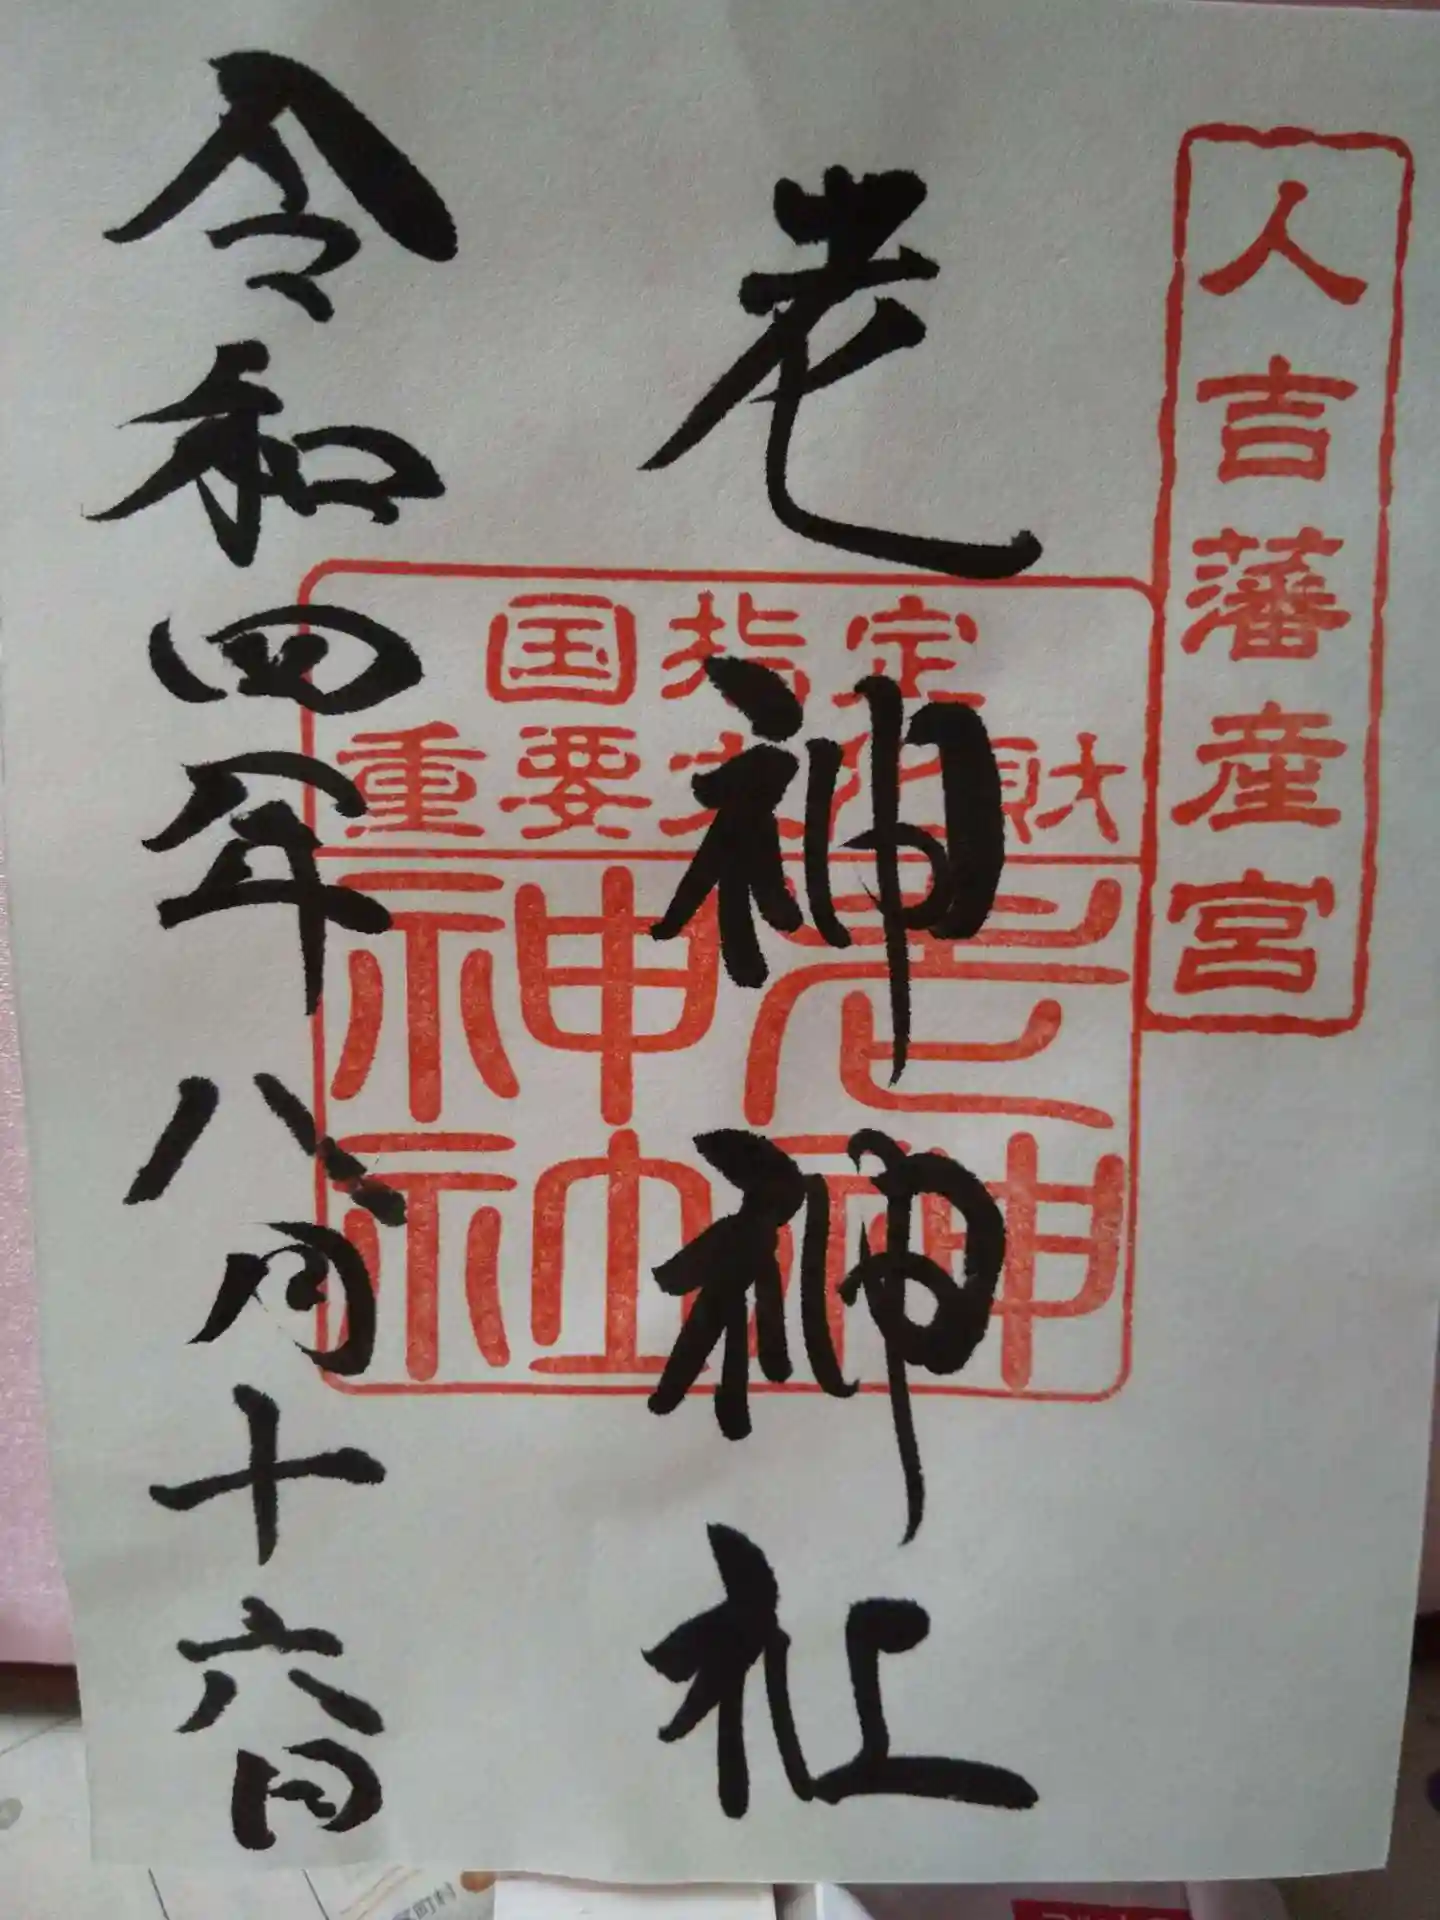 人吉藩産宮
老神神社
国指定
重要文化財
老神
神社
令和四年八月十六日
町村